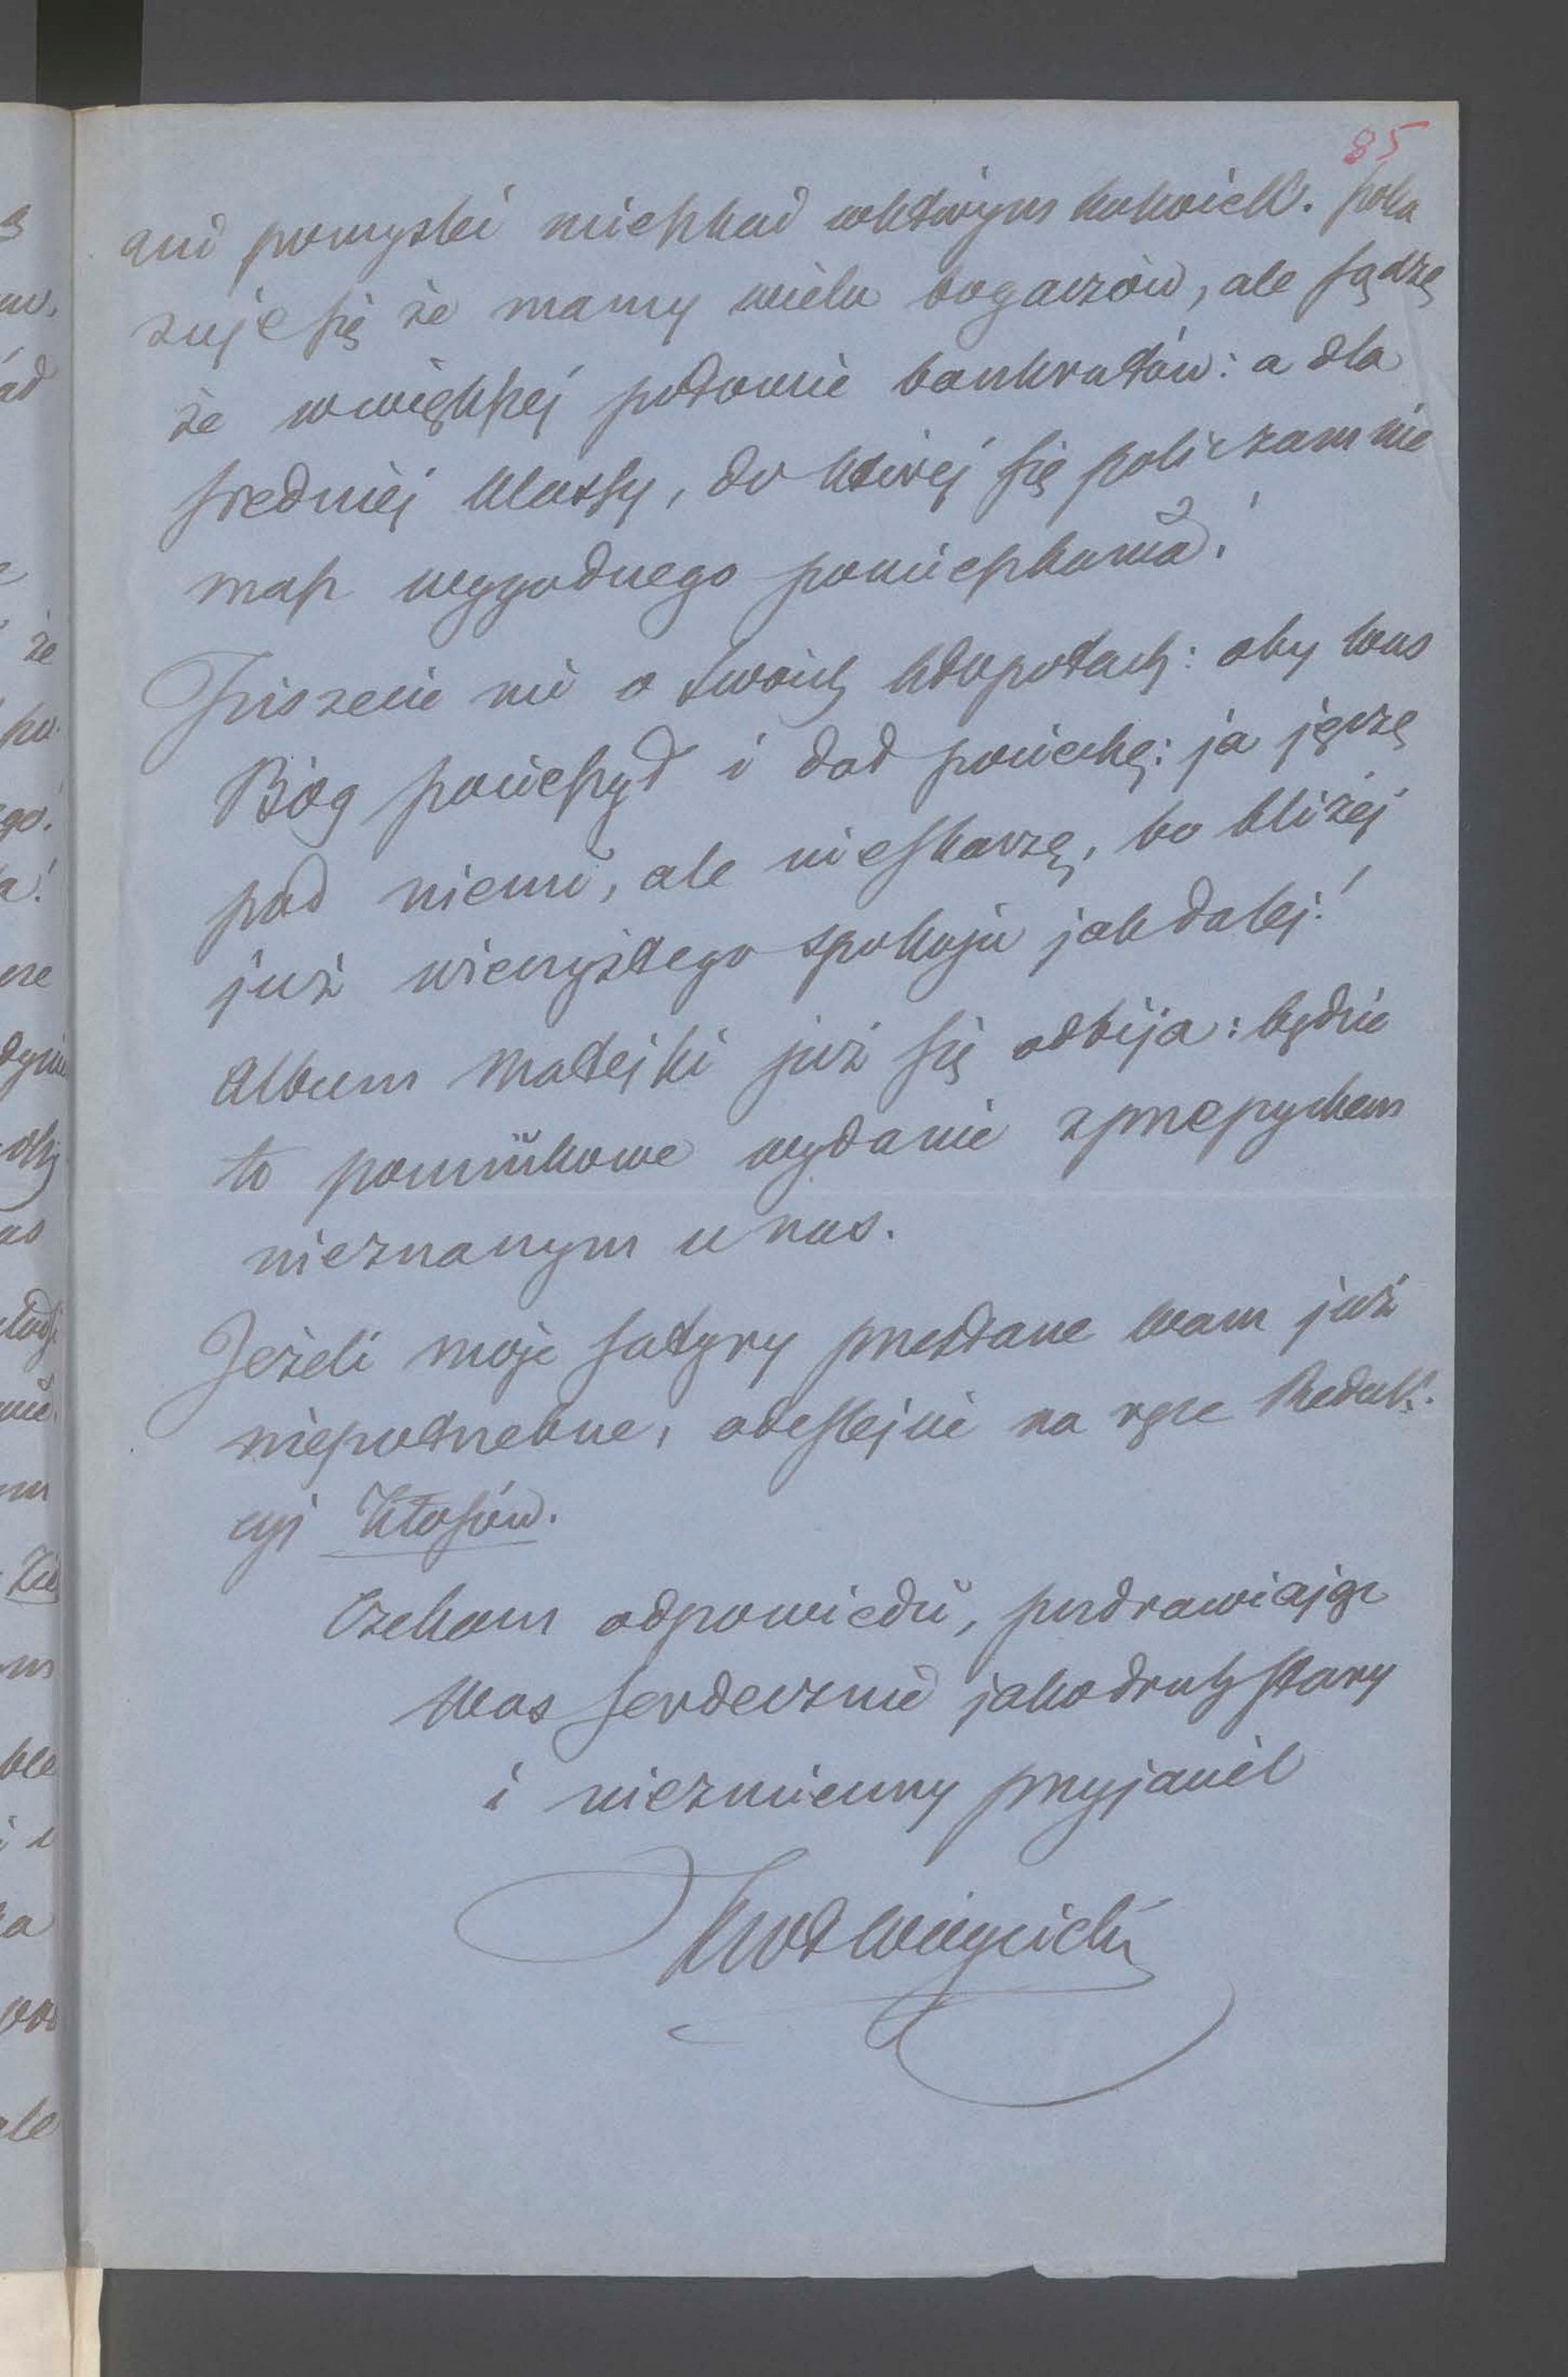 85
ani pomyśleć mieszkać w którym kolwiek. Poka
zuje się że mamy wielu bogaczów, ale sądzę
że wwiększej połowie bankrutów: a dla
sredniej klassy, do której się policzam nie
masz wygodnego pomieszkania!
Piszecie mi o swoich kłopotach: oby Was
Bóg pocieszył i dał pociechę: ja jęczę
pod niemi, ale nieskarżę, bo bliżéj
już wieczystego spokoju jak daléj!
Album Matejki już się odbija: będzie
to pomnikowe wydanie zprzepychem
nieznanym u nas.
Jeżeli moje satyry przestane Wam już
niepotrzebne, odeslejcie na ręce Redak-
cyi Kłosów.
Czekam odpowiedzi, pozdrawiając
Was serdecznie jako druh stary
i niezmienny przyjaciel
KWł Wójcicki